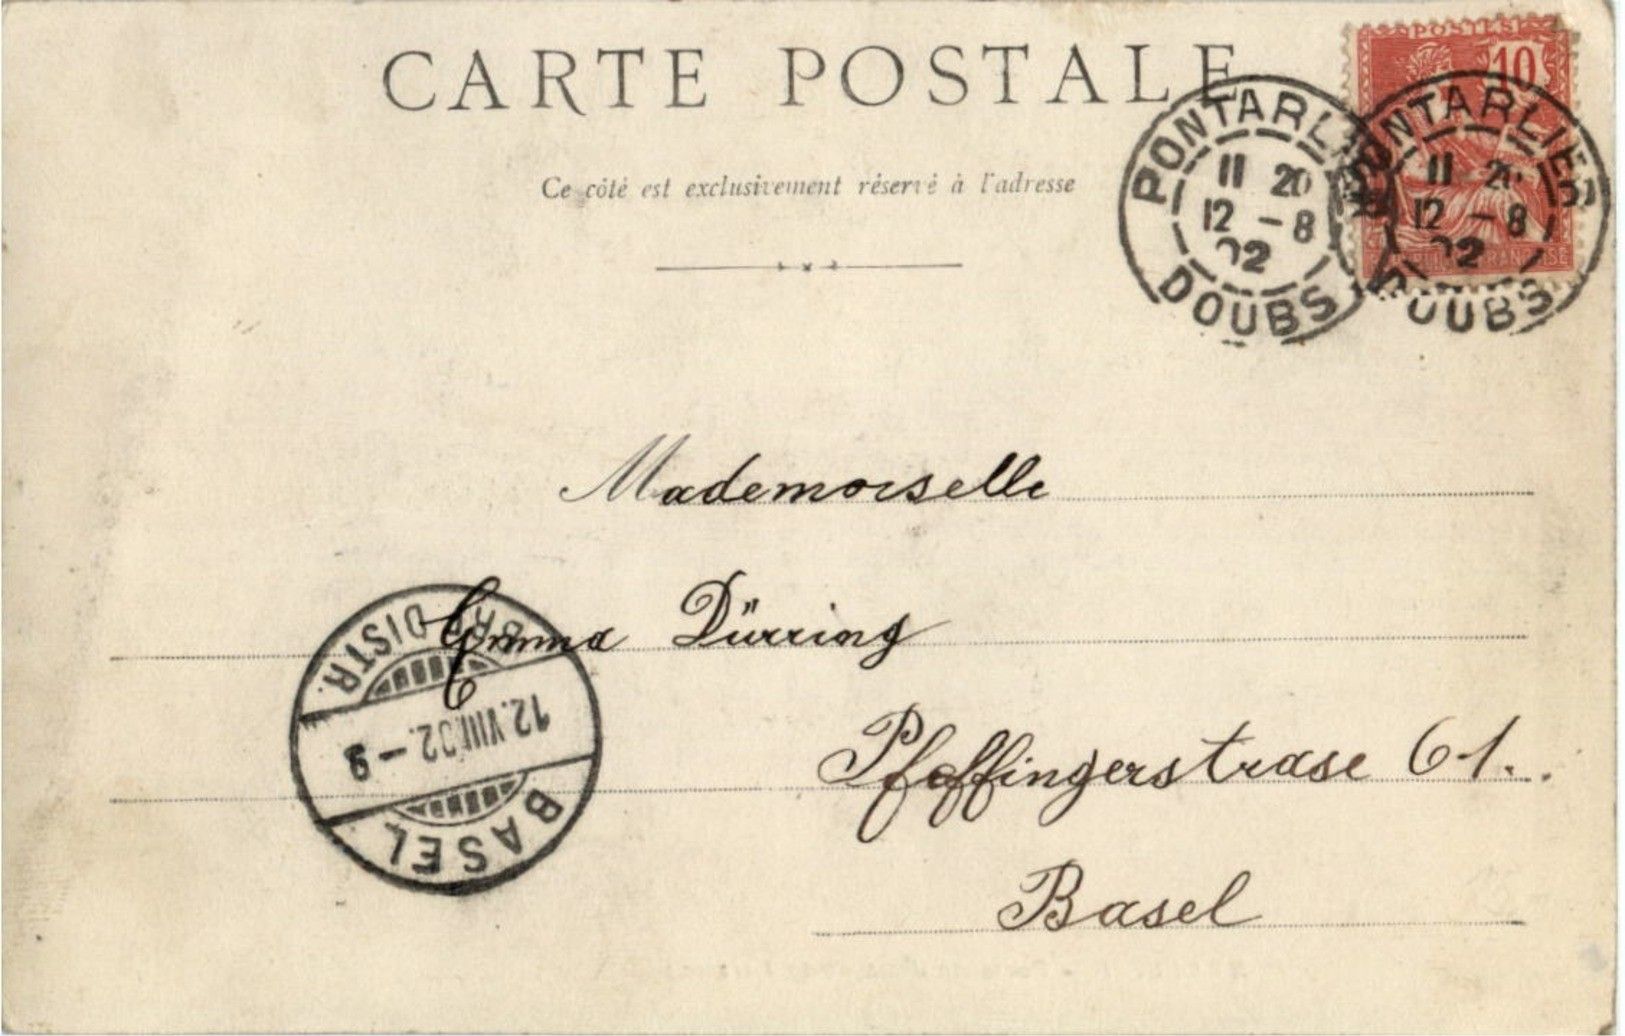 CARTE POSTALE
Ce côté est exclusivement réservé à l'adresse
POSTES
10
PONTARLIER
11 20
12 - 8
02
DOUBS
PONTARLIER
11 20
12 - 8
02
DOUBS
Mademoiselle
Emma Dürring
Pfeffingerstrase 61.
Basel
BRF. DISTR.
12.VIII.02.-9
BASEL